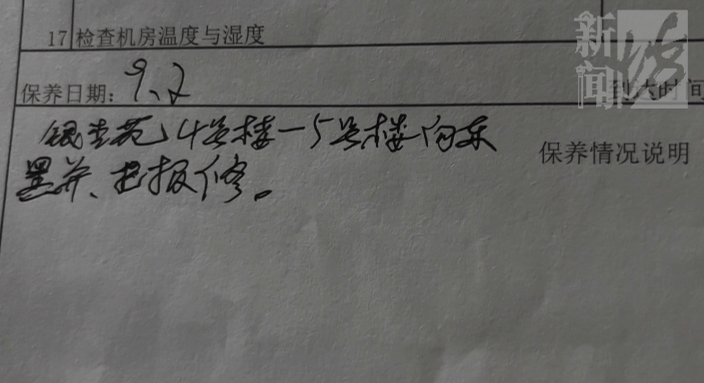 17 检查机房温度与湿度
新闻
保养日期：9.2
到达时间
银杏苑4号楼—5号楼向东
黑屏、已报修。
保养情况说明